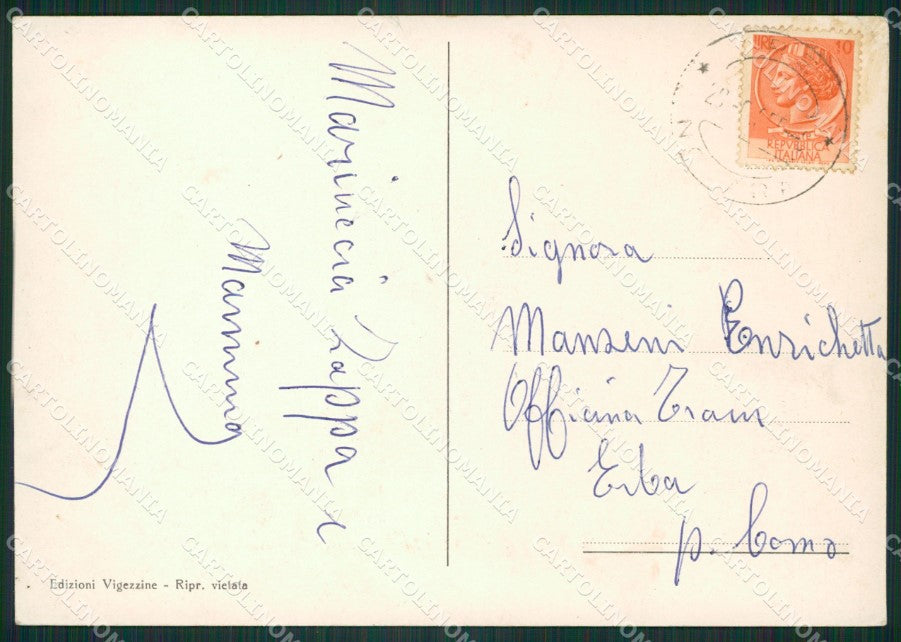 Marinccia Zappa e
Mamma
LIRE 10
REPVBBLICA
ITALIANA
Signora
Manzeni Enrichetta
Officina Tram
Erba
p. Como
Edizioni Vigezzine - Ripr. vietata
CARTOLINOMANIA